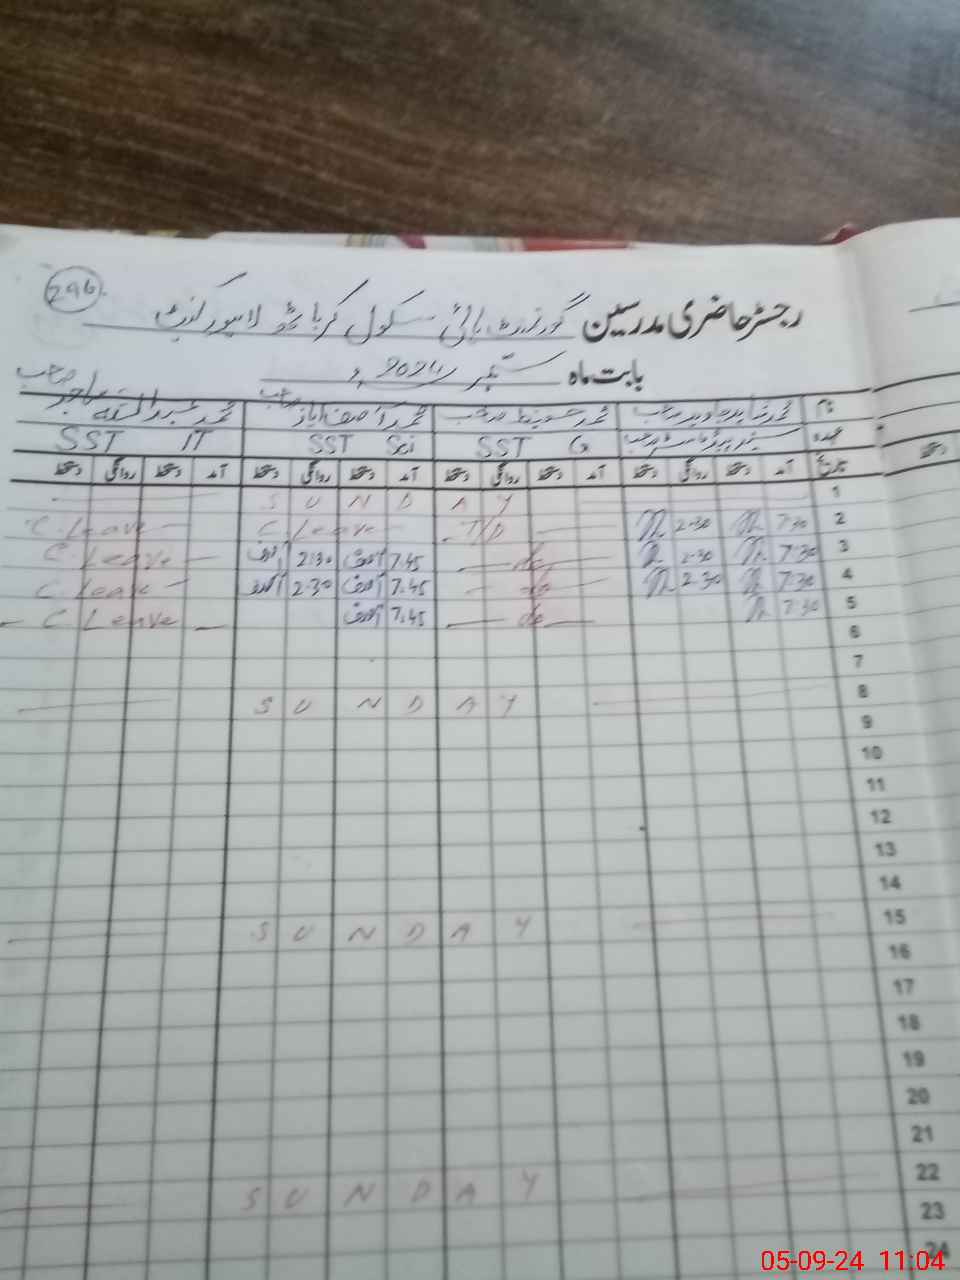 296
رجسٹر حاضری مدرسین گورنمنٹ ہائی سکول کرباٹھ لاہور کینٹ
بابت ماہ ستمبر 2024ء
نام محمد صاحب محمد حفیظ صاحب محمد آصف ایاز صاحب محمد عبداللہ صاحب
عہدہ SST G SST Sci SST IT
تاریخ آمد دستخط روانگی دستخط آمد دستخط روانگی دستخط آمد دستخط روانگی دستخط آمد دستخط روانگی دستخط
1 S U N D A Y
2 7:30 2:30 T/D C Leave C Leave
3 7:30 2:30 do 7.45 آصف 2:30 آصف C Leave
4 7:30 2:30 do 7.45 آصف 2:30 آصف C Leave
5 7:30 do 7.45 آصف C Leave
6
7
8 S U N D A Y
9
10
11
12
13
14
15 S U N D A Y
16
17
18
19
20
21
22 S U N D A Y
23
24
05-09-24 11:04